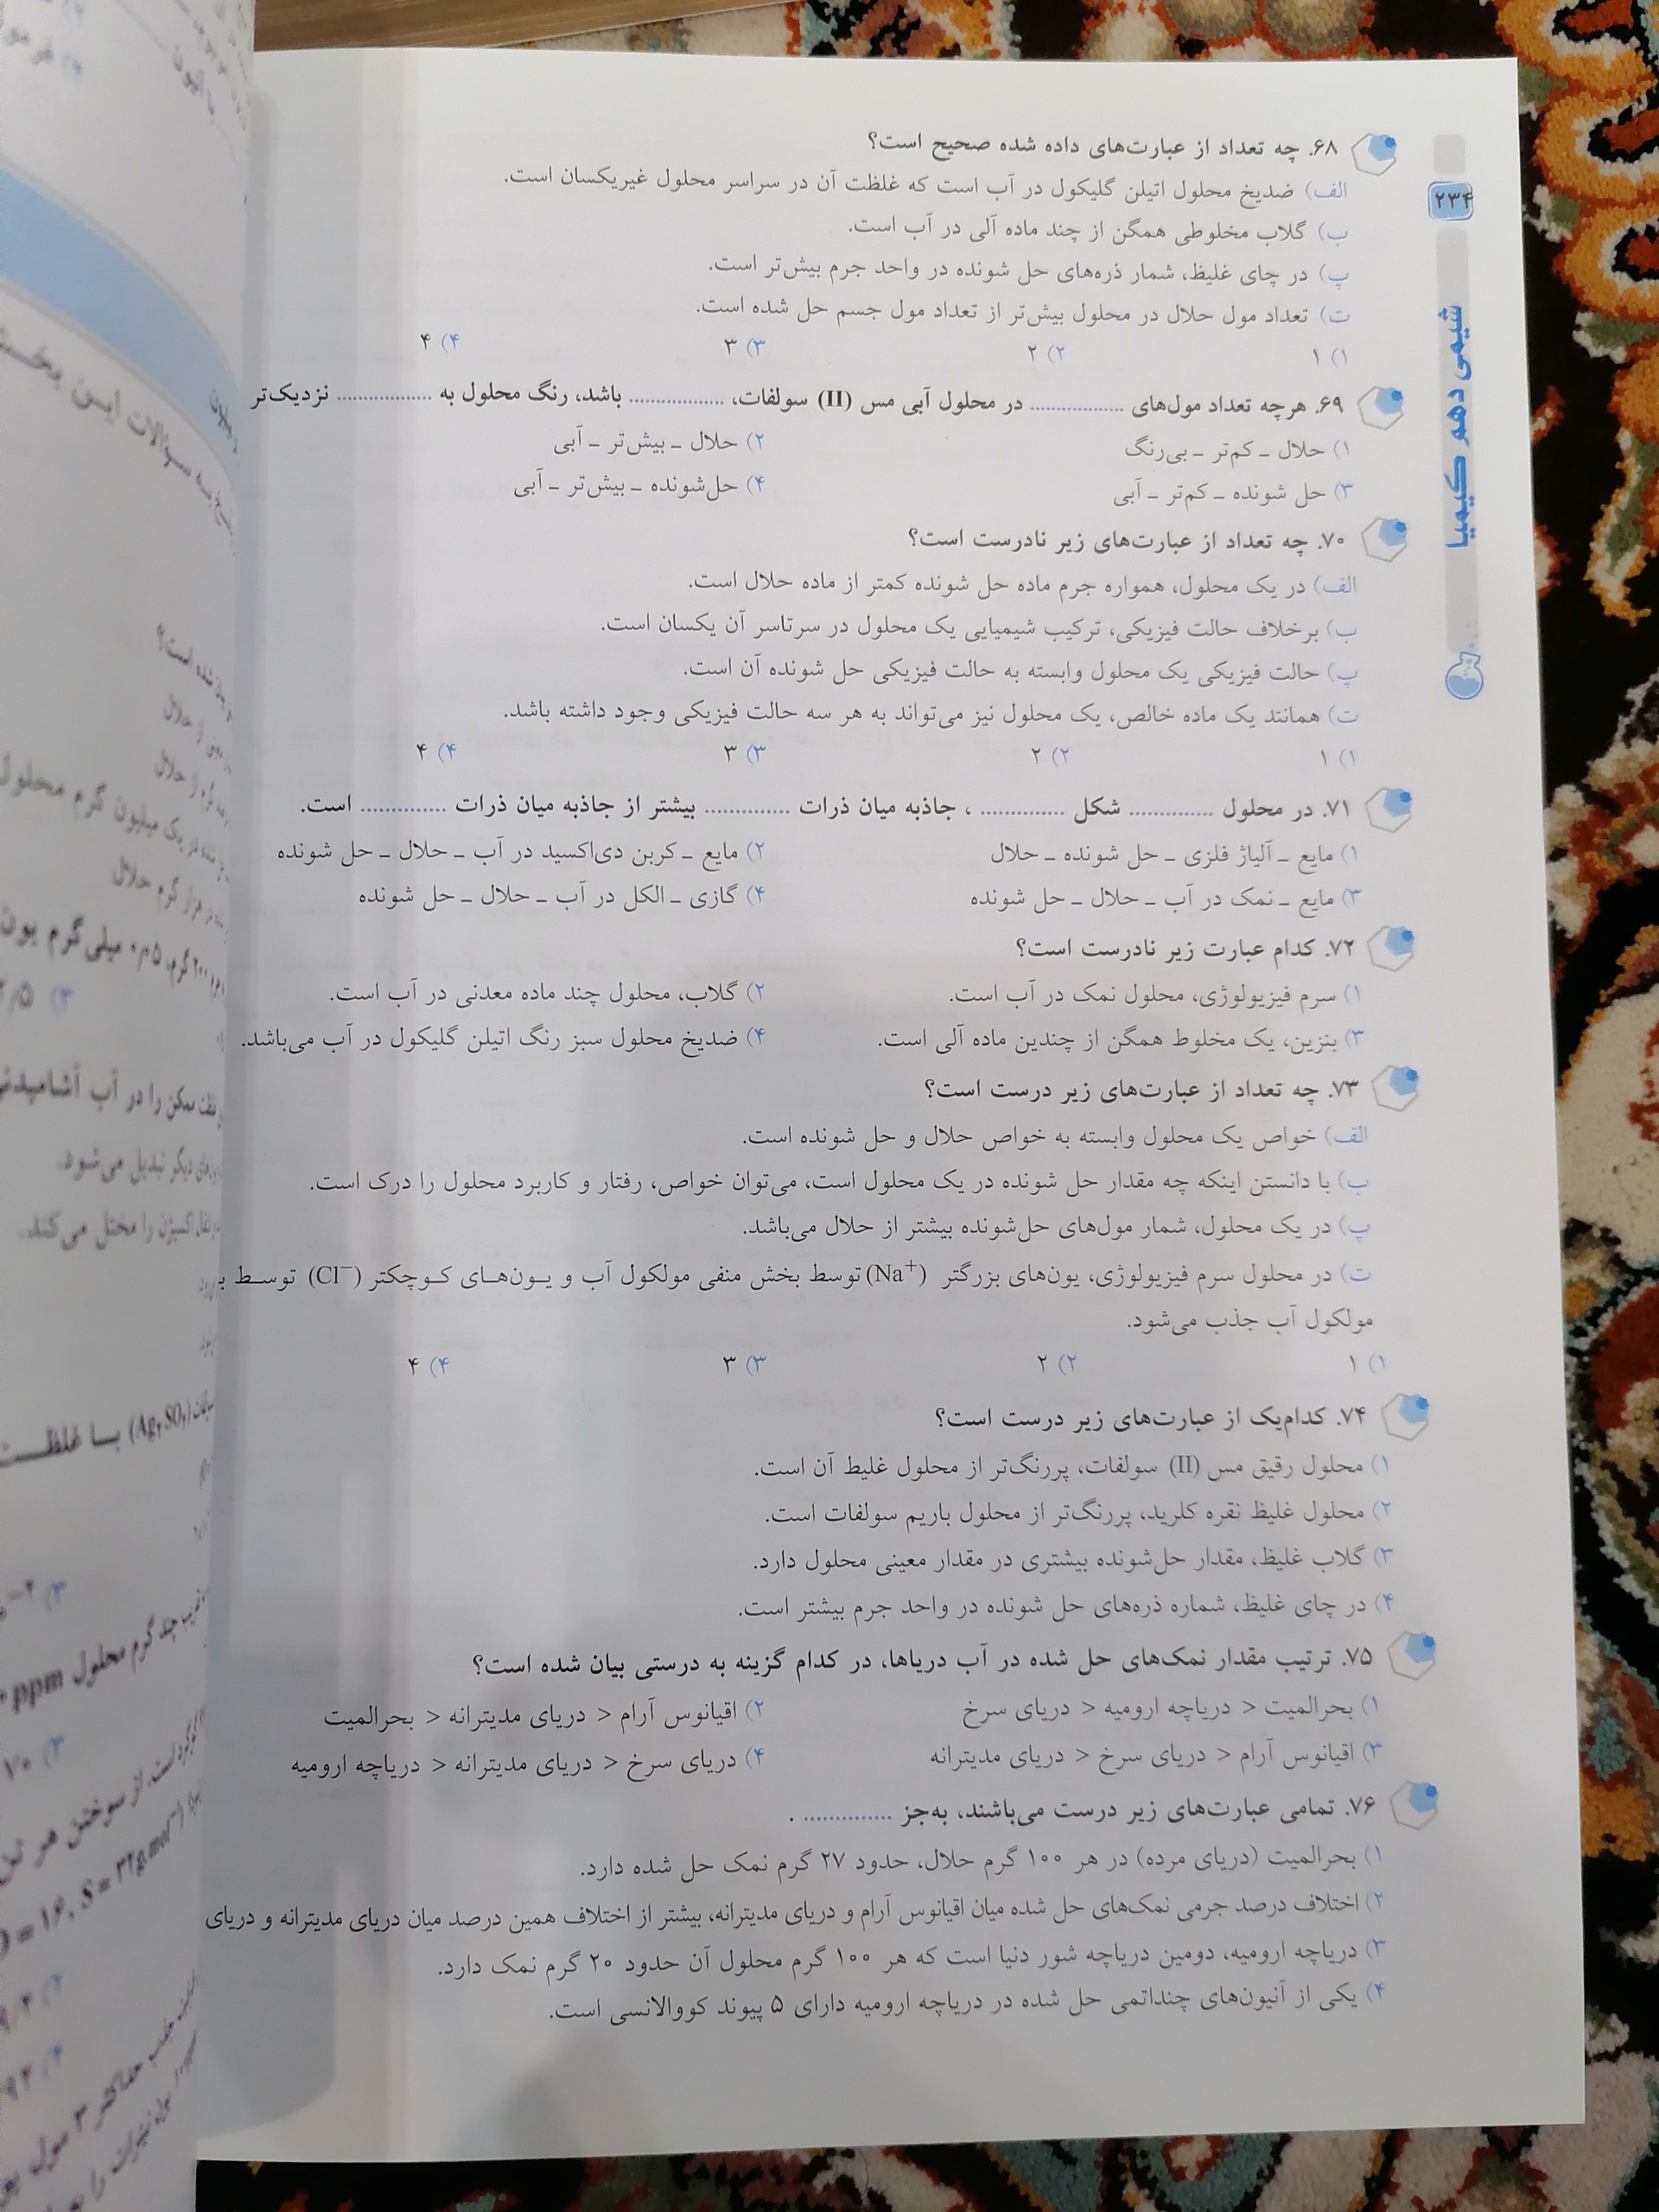 ۲۳۴
شیمی دهم کیمیا
۶۸. چه تعداد از عبارت‌های داده شده صحیح است؟
الف) ضدیخ محلول اتیلن گلیکول در آب است که غلظت آن در سراسر محلول غیریکسان است.
ب) گلاب مخلوطی همگن از چند ماده آلی در آب است.
پ) در چای غلیظ، شمار ذره‌های حل شونده در واحد جرم بیش‌تر است.
ت) تعداد مول حلال در محلول بیش‌تر از تعداد مول جسم حل شده است.
۱) ۱ ۲) ۲ ۳) ۳ ۴) ۴
۶۹. هرچه تعداد مول‌های ................ در محلول آبی مس (II) سولفات، ................ باشد، رنگ محلول به ................ نزدیک‌تر
۱) حلال ـ کم‌تر ـ بی‌رنگ ۲) حلال ـ بیش‌تر ـ آبی
۳) حل شونده ـ کم‌تر ـ آبی ۴) حل‌شونده ـ بیش‌تر ـ آبی
۷۰. چه تعداد از عبارت‌های زیر نادرست است؟
الف) در یک محلول، همواره جرم ماده حل شونده کمتر از ماده حلال است.
ب) برخلاف حالت فیزیکی، ترکیب شیمیایی یک محلول در سرتاسر آن یکسان است.
پ) حالت فیزیکی یک محلول وابسته به حالت فیزیکی حل شونده آن است.
ت) همانند یک ماده خالص، یک محلول نیز می‌تواند به هر سه حالت فیزیکی وجود داشته باشد.
۱) ۱ ۲) ۲ ۳) ۳ ۴) ۴
۷۱. در محلول .............. شکل .............. ، جاذبه میان ذرات .............. بیشتر از جاذبه میان ذرات .............. است.
۱) مایع ـ آلیاژ فلزی ـ حل شونده ـ حلال ۲) مایع ـ کربن دی‌اکسید در آب ـ حلال ـ حل شونده
۳) مایع ـ نمک در آب ـ حلال ـ حل شونده ۴) گازی ـ الکل در آب ـ حلال ـ حل شونده
۷۲. کدام عبارت زیر نادرست است؟
۱) سرم فیزیولوژی، محلول نمک در آب است. ۲) گلاب، محلول چند ماده معدنی در آب است.
۳) بنزین، یک مخلوط همگن از چندین ماده آلی است. ۴) ضدیخ محلول سبز رنگ اتیلن گلیکول در آب می‌باشد.
۷۳. چه تعداد از عبارت‌های زیر درست است؟
الف) خواص یک محلول وابسته به خواص حلال و حل شونده است.
ب) با دانستن اینکه چه مقدار حل شونده در یک محلول است، می‌توان خواص، رفتار و کاربرد محلول را درک است.
پ) در یک محلول، شمار مول‌های حل‌شونده بیشتر از حلال می‌باشد.
ت) در محلول سرم فیزیولوژی، یون‌های بزرگتر (Na⁺) توسط بخش منفی مولکول آب و یـون‌هـای کـوچکتر (Cl⁻) توسـط
مولکول آب جذب می‌شود.
۱) ۱ ۲) ۲ ۳) ۳ ۴) ۴
۷۴. کدام‌یک از عبارت‌های زیر درست است؟
۱) محلول رقیق مس (II) سولفات، پررنگ‌تر از محلول غلیظ آن است.
۲) محلول غلیظ نقره کلرید، پررنگ‌تر از محلول باریم سولفات است.
۳) گلاب غلیظ، مقدار حل‌شونده بیشتری در مقدار معینی محلول دارد.
۴) در چای غلیظ، شماره ذره‌های حل شونده در واحد جرم بیشتر است.
۷۵. ترتیب مقدار نمک‌های حل شده در آب دریاها، در کدام گزینه به درستی بیان شده است؟
۱) بحرالمیت < دریاچه ارومیه < دریای سرخ ۲) اقیانوس آرام < دریای مدیترانه < بحرالمیت
۳) اقیانوس آرام < دریای سرخ < دریای مدیترانه ۴) دریای سرخ < دریای مدیترانه < دریاچه ارومیه
۷۶. تمامی عبارت‌های زیر درست می‌باشند، به‌جز .............. .
۱) بحرالمیت (دریای مرده) در هر ۱۰۰ گرم حلال، حدود ۲۷ گرم نمک حل شده دارد.
۲) اختلاف درصد جرمی نمک‌های حل شده میان اقیانوس آرام و دریای مدیترانه، بیشتر از اختلاف همین درصد میان دریای مدیترانه و دریای
۳) دریاچه ارومیه، دومین دریاچه شور دنیا است که هر ۱۰۰ گرم محلول آن حدود ۲۰ گرم نمک دارد.
۴) یکی از آنیون‌های چنداتمی حل شده در دریاچه ارومیه دارای ۵ پیوند کووالانسی است.